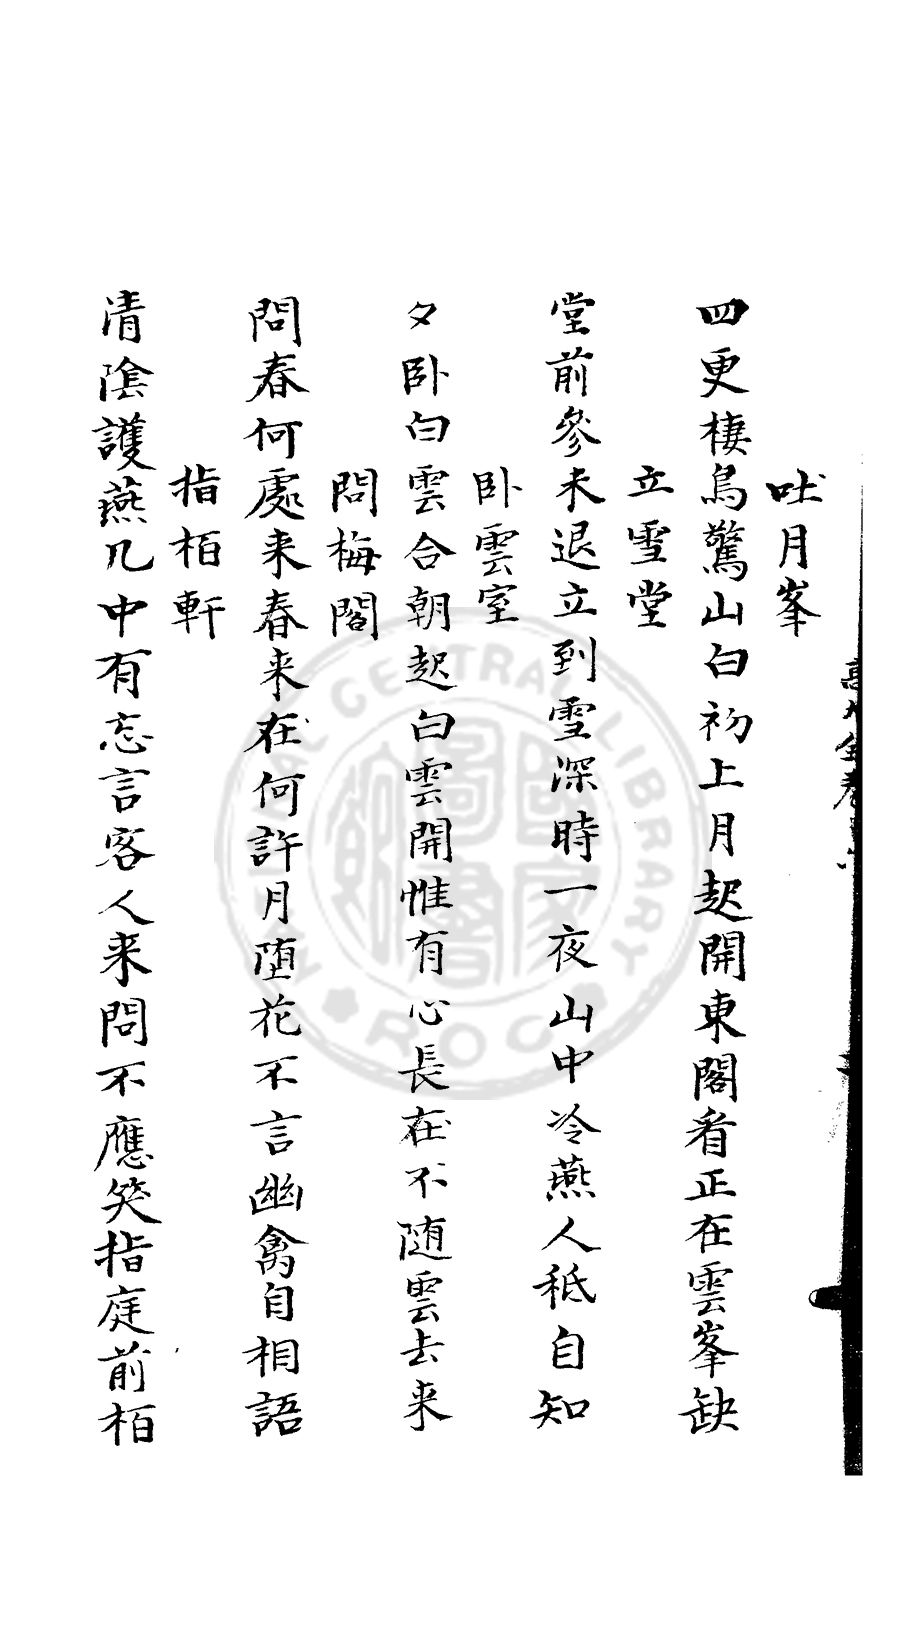 吐月峯
四更棲鳥驚山白初上月起開東閣看正在雲峯缺
立雪堂
堂前參未退立到雪深時一夜山中冷燕人秪自知
卧雲室
夕卧白雲合朝起白雲開惟有心長在不随雲去来
問梅閣
問春何處来春来在何許月堕花不言幽禽自相語
指栢軒
清陰護燕几中有忘言客人来問不應笑指庭前栢
NATIONAL CENTRAL LIBRARY
ROC